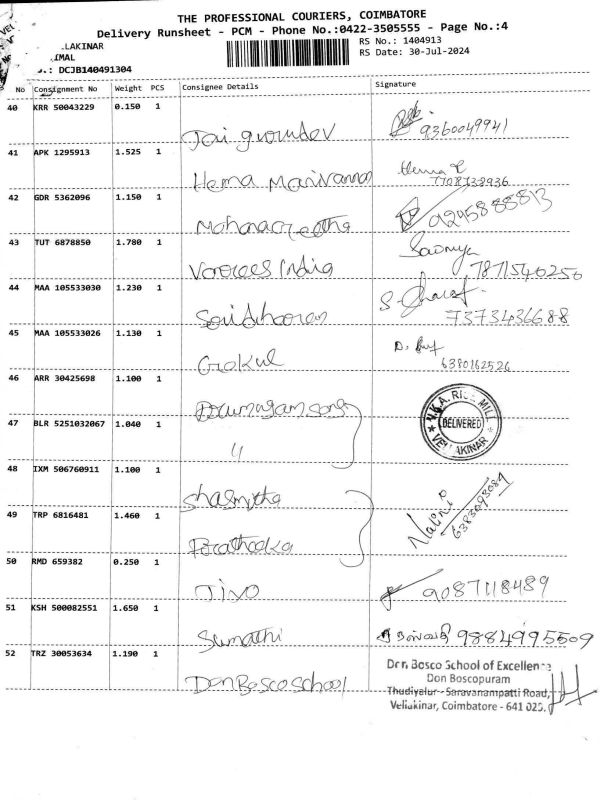 THE PROFESSIONAL COURIERS, COIMBATORE
Delivery Runsheet - PCM - Phone No.:0422-3505555 - Page No.:4
.LAKINAR
RS No.: 1404913
IMAL
RS Date: 30-Jul-2024
.: DCJB140491304
No Consignment No Weight PCS Consignee Details Signature
40 KRR 50043229 0.150 1
Jai gurudev 9360049941
41 APK 1295913 1.525 1
Hema Marivannan Hema
42 GDR 5362096 1.150 1
9245888813
43 TUT 6878850 1.780 1
India Sowmya 7871540250
44 MAA 105533030 1.230 1
Saridharan S 7373436688
45 MAA 105533026 1.130 1
Gokul D. 6380162526
46 ARR 30425698 1.100 1
47 BLR 5251032067 1.040 1
N.K.A. RICE MILL
DELIVERED
VELLAKINAR
48 IXM 506760911 1.100 1
Shasmitha
Nalini
6383093089
49 TRP 6816481 1.460 1
50 RMD 659382 0.250 1
Jivo 9087118489
51 KSH 500082551 1.650 1
Sumathi 9884995509
52 TRZ 30053634 1.190 1
Don Bosco School
Don Bosco School of Excellence
Don Boscopuram
Thudiyalur - Saravanampatti Road,
Vellakinar, Coimbatore - 641 029.